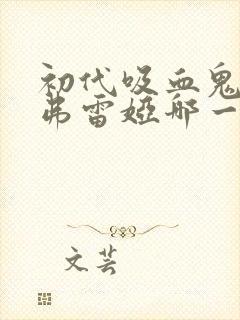 初代吸血鬼
弗雷娅哪一
文芸